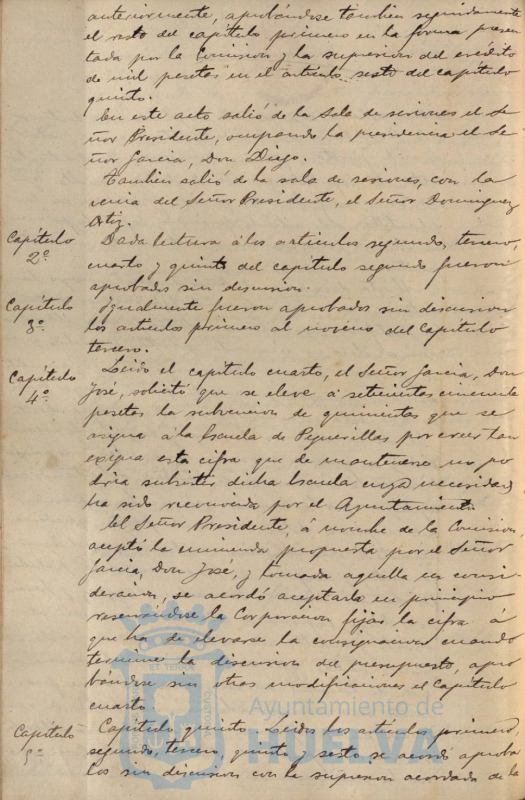 anteriormente, aprobándose tambien seguidamente
el resto del capítulo primero en la forma presen
tada por la Comision y la supresion del crédito
de mil pesetas en el artículo sesto del capítulo
quinto.
En este acto salió de la Sala de sesiones el Se
ñor Presidente, ocupando la presidencia el Se
ñor Garcia, Don Diego.
Tambien salió de la sala de sesiones, con la
venia del Señor Presidente, el Señor Dominguez
Ortiz.
Capítulo 2º
Dada lectura á los artículos segundo, tercero,
cuarto y quinto del capítulo segundo fueron
aprobados sin discusion.
Capítulo 3º
Igualmente fueron aprobados sin discusion
los artículos primero al noveno del Capítulo
tercero.
Capítulo 4º
Leido el capítulo cuarto, el Señor Garcia, Don
José, solicitó que se eleve á setecientas cincuenta
pesetas la subvencion de quinientas que se
asigna á la Escuela de Pequerillas por creer tan
exigua esta cifra que de mantenerse no po
dria subsistir dicha Escuela cuya necesidad
ha sido reconocida por el Ayuntamiento.
El Señor Presidente, á nombre de la Comision,
aceptó la enmienda propuesta por el Señor
Garcia, Don José, y tomada aquella en consi
deracion, se acordó aceptarla en principio
reservándose la Corporacion fijar la cifra á
que ha de elevarse la consignacion cuando
termine la discusion del presupuesto, apro
bándose sin otras modificaciones el Capítulo
cuarto.
Capítulo 5º
Capítulo quinto. Leidos los artículos primero,
segundo, tercero, quinto y sesto se acordó aprobar
los sin discusion con la supresion acordada de la
Ayuntamiento de
HUELVA